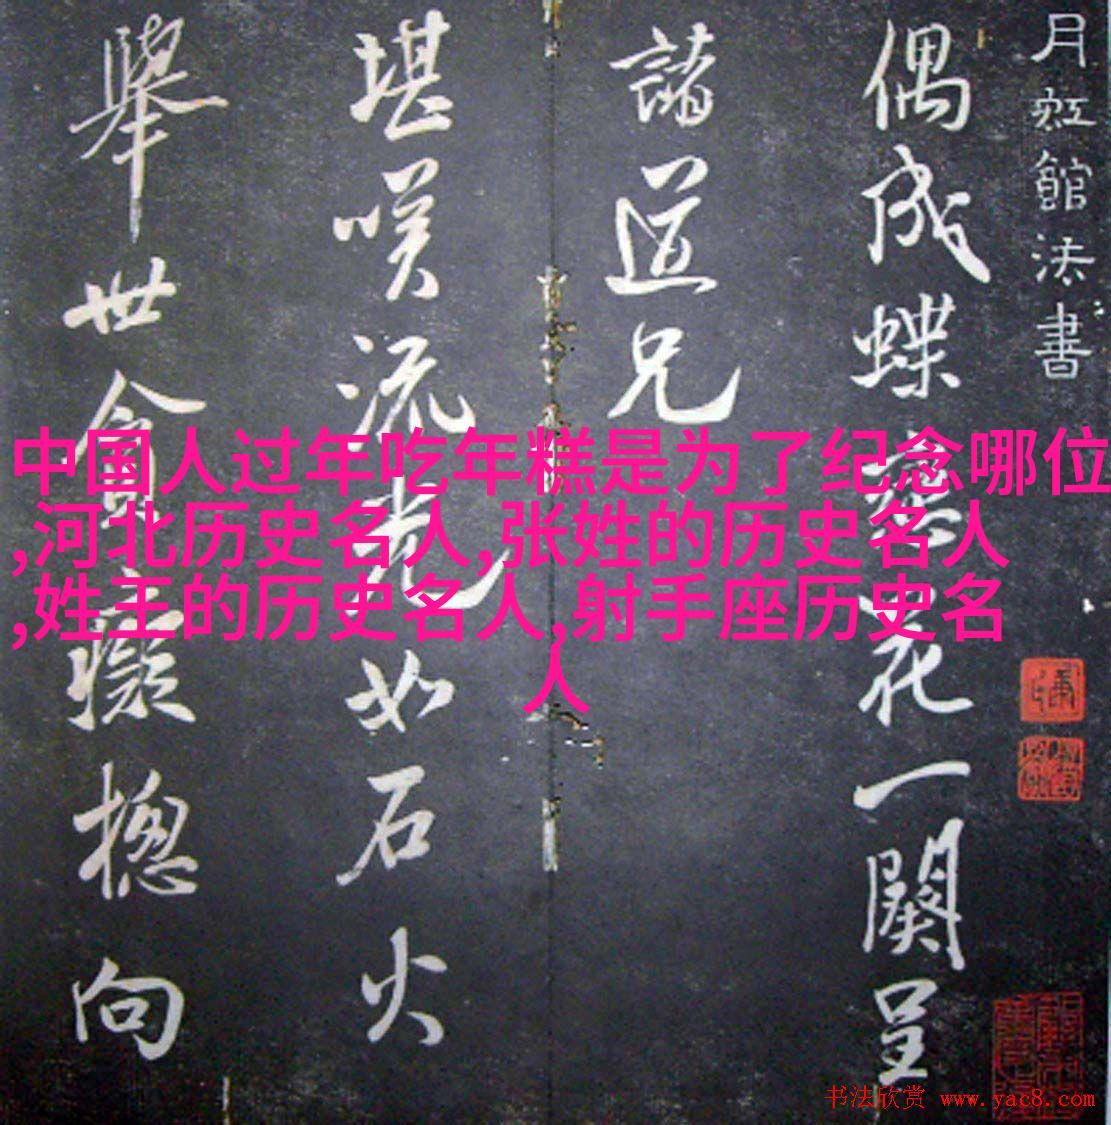 月虹館法書
偶成蝶戀花一闋呈
諸道兄
堪咲流光如石火
舉世貪癡揔向
中国人过年吃年糕是为了纪念哪位
,河北历史名人,张姓的历史名人
,姓王的历史名人,射手座历史名
人
书法欣赏 www.yac8.com